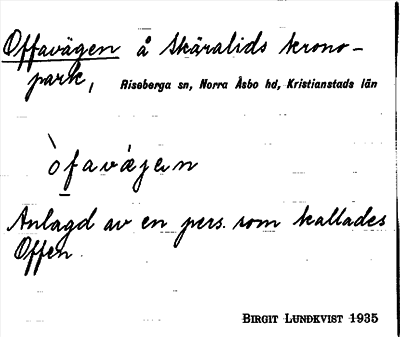 Offavägen å Skäralids krono-
park, Riseberga sn, Norra Åsbo hd, Kristianstads län
òfavàgen
Anlagd av en pers. som kallades
Offen.
BIRGIT LUNDKVIST 1935